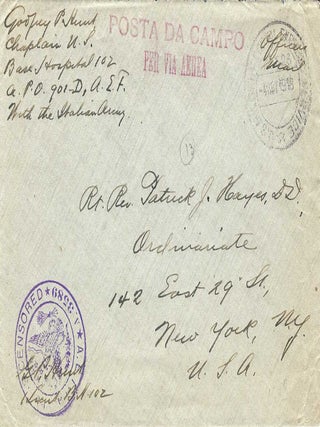 Godfrey P. Hunt
Chaplain U.S.
Base Hospital 102
A.P.O. 901-D, A.E.F.
With the Italian Army.
POSTA DA CAMPO
PER VIA AEREA
Officer's
Mail
13
Rt. Rev. Patrick J. Hayes, DD.,
Ordinariate
142 East 29" St,
New York, Ny.
U.S.A.
CENSORED
A.E.F.
102